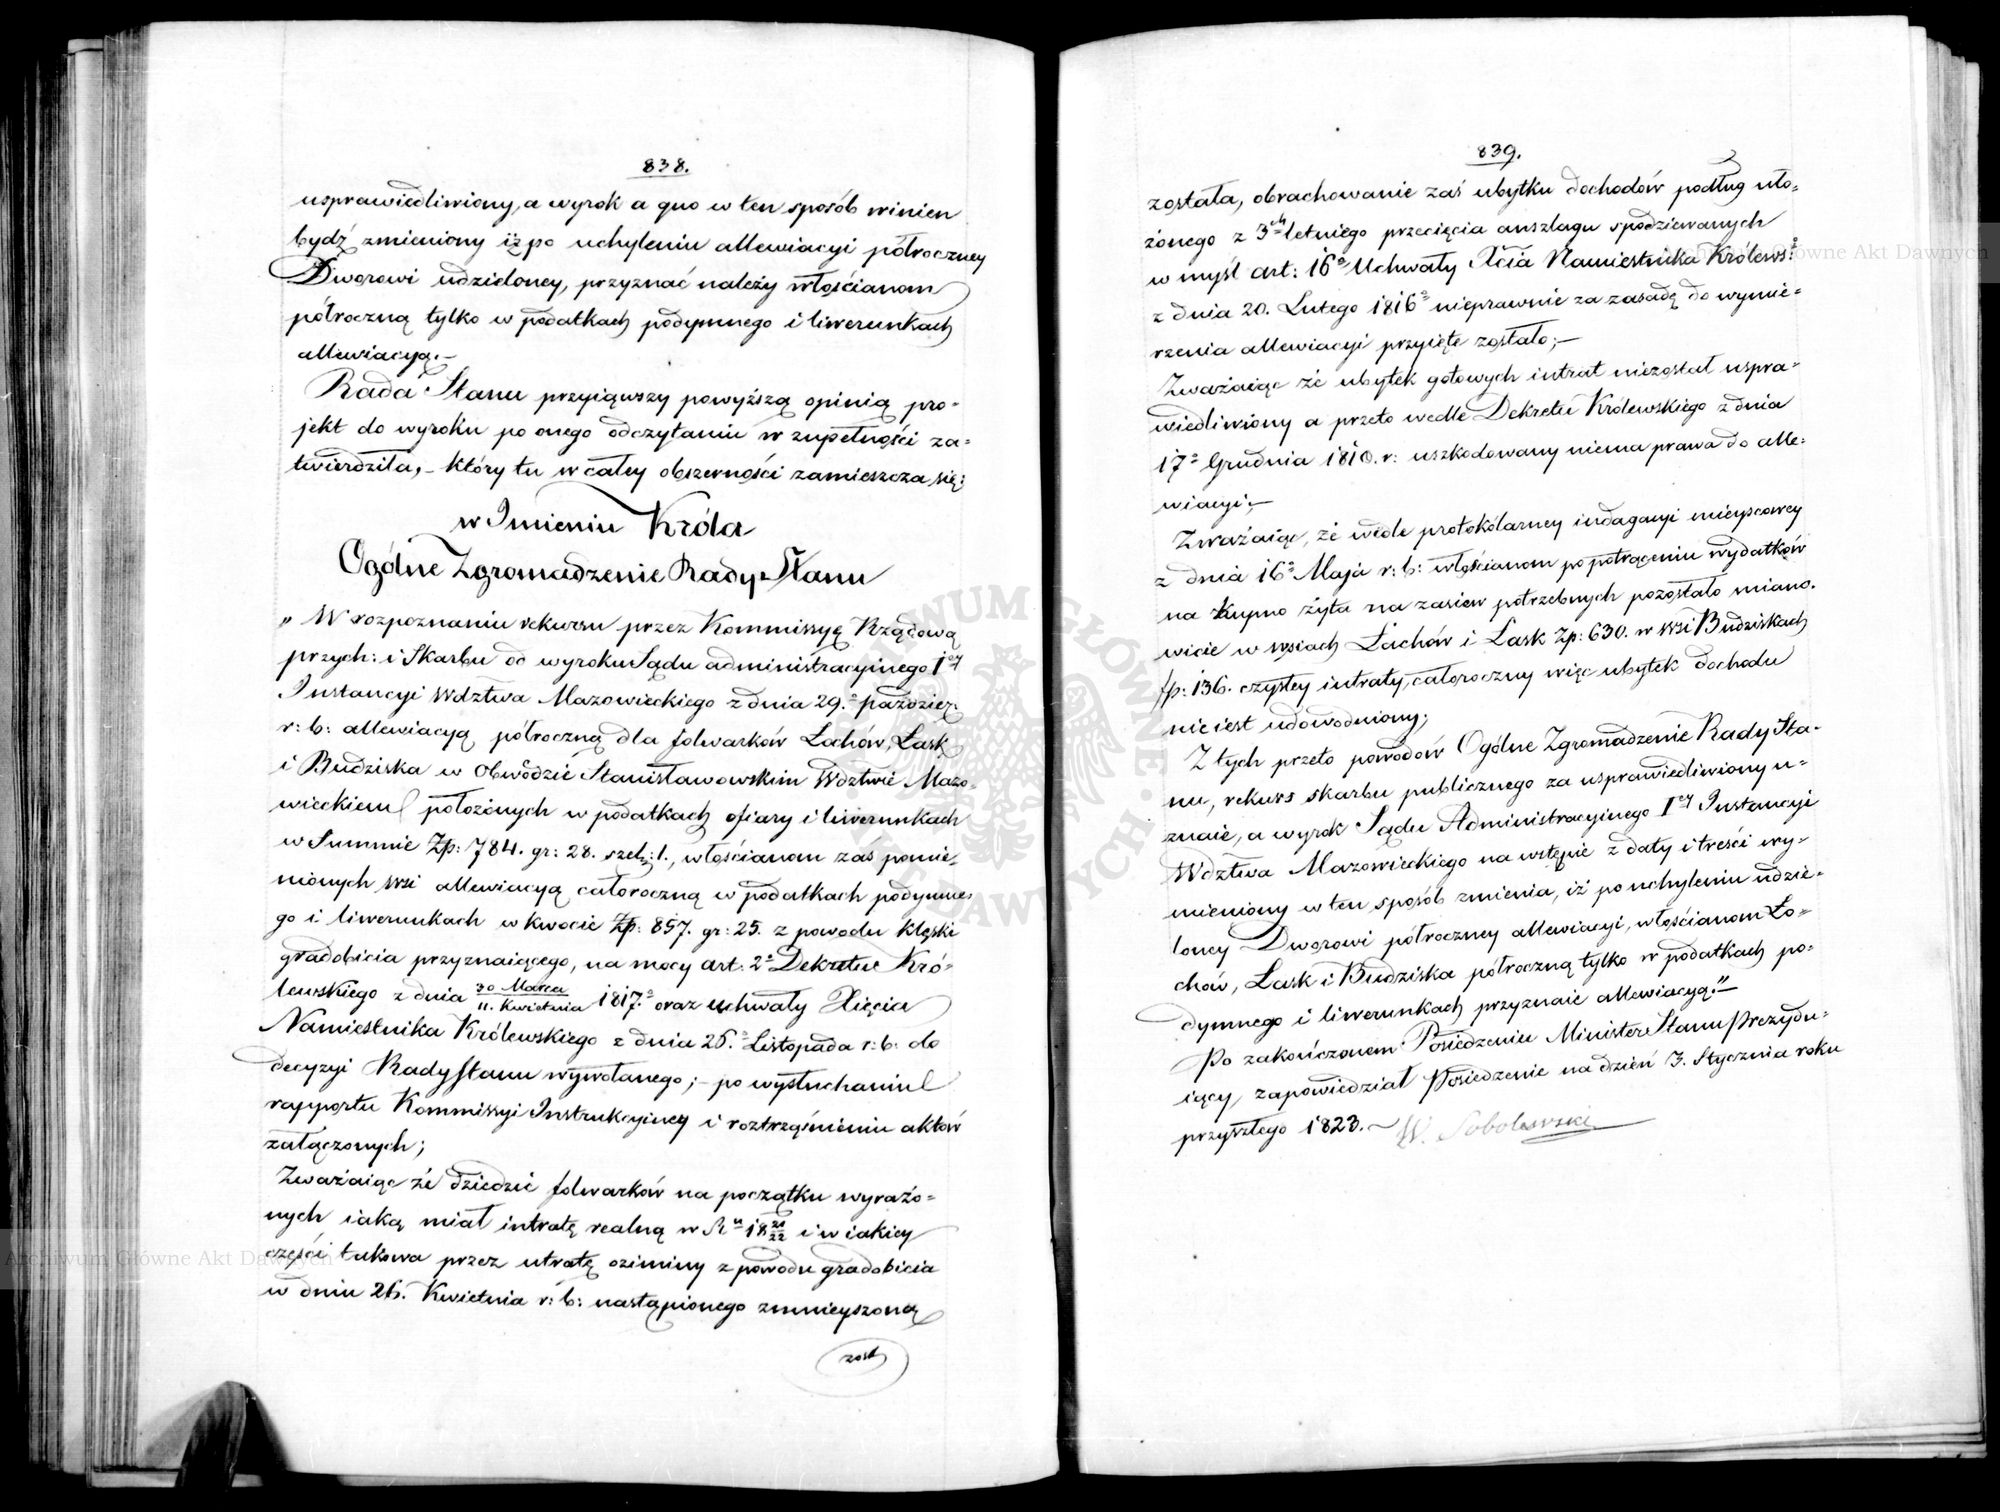 838.
usprawiedliwiony, a wyrok a quo w ten sposób winien
bydź zmieniony iż po uchyleniu allewiacyi półroczney
Dworowi udzieloney, przyznać należy włościanom
półroczną tylko w podatkach podymnego i liwerunkach
allewiacyą.—
Rada Stanu przyiąwszy powyższą opinią pro-
jekt do wyroku po onego odczytaniu w zupełności za-
twierdziła,- który tu w całey obszerności zamieszcza się:
w Imieniu Króla
Ogólne Zgromadzenie Rady Stanu
„W rozpoznaniu rekursu przez Kommissyę Rządową
przych: i Skarbu od wyroku Sądu administracyinego Iey
Instancyi Wdztwa Mazowieckiego z dnia 29.o paździer:
r: b: allewiacyą półroczną dla folwarków Łochów, Łask
i Budziska w Obwodzie Stanisławowskim Wdztwie Mazo-
wieckiem położonych w podatkach ofiary i liwerunkach
w Summie Zp: 784. gr: 28. szel: 1., włościanom zaś pomie-
nionych wsi allewiacyą całoroczną w podatkach podymne-
go i liwerunkach w kwocie Zp: 857. gr: 25. z powodu klęski
gradobicia przyznaiącego, na mocy art: 2o Dekretu Kró-
lewskiego z dnia 30 Marca / 11. Kwietnia 1817.o oraz uchwały Xięcia
Namiestnika Królewskiego z dnia 26.o Listopada r: b: do
decyzyi Rady Stanu wywołanego;- po wysłuchaniu
rapportu Kommissyi Instrukcyiney i roztrząśnieniu aktów
załączonych;
Zważaiąc że dziedzic folwarków na początku wyrażo-
nych iaką miał intratę realną w Ru 18 21/22 i w iakiey
części takowa przez utratę oziminy z powodu gradobicia
w dniu 26. Kwietnia r: b: nastąpionego zmnieyszoną
zost
839.
została, obrachowanie zaś ubytku dochodów podług uło-
żonego z 3ch letniego przecięcia anszlagu spodziewanych
w myśl art: 16o Uchwały Xcia Namiestnika Królews:o
z dnia 20. Lutego 1816o nieprawnie za zasadę do wymie-
rzenia allewiacyi przyięte zostało;—
Zważaiąc że ubytek gotowych intrat niezostał uspra-
wiedliwiony a przeto wedle Dekretu Królewskiego z dnia
17o Grudnia 1810. r: uszkodowany niema prawa do alle-
wiacyi;—
Zważaiąc, że wedle protokólarney indagacyi mieyscowey
z dnia 16o Maja r: b: włościanom po potrąceniu wydatków
na kupno żyta na zasiew potrzebnych pozostało miano-
wicie w wsiach Łochów i Łask Zp: 630. w wsi Budziskach
fp: 136. czystey intraty, całoroczny więc ubytek dochodu
nie iest udowodniony;
Z tych przeto powodów Ogólne Zgromadzenie Rady Sta-
nu, rekurs skarbu publicznego za usprawiedliwiony u-
znaie, a wyrok Sądu Administracyinego Iey Instancyi
Wdztwa Mazowieckiego na wstępie z daty i treści wy-
mieniony w ten sposób zmienia, iż po uchyleniu udzie-
loney Dworowi półroczney allewiacyi, włościanom Ło-
chów, Łask i Budziska półroczną tylko w podatkach po-
dymnego i liwerunkach przyznaie allewiacyą."—
Po zakończonem Posiedzeniu Minister Stanu Prezydu-
iący, zapowiedział Posiedzenie na dzień 3. Stycznia roku
przyszłego 1823.— W. Sobolewski
Archiwum Główne Akt Dawnych
Archiwum Główne Akt Dawnych
ARCHIWUM GŁÓWNE AKT DAWNYCH